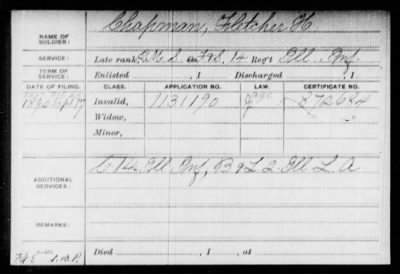 NAME OF SOLDIER: Chapman, Fletcher H
SERVICE: Late rank Q.M.S. Co. F&S, 14 Reg't Ill. Inf.
TERM OF SERVICE: Enlisted , 1 Discharged , 1
DATE OF FILING. CLASS. APPLICATION NO. LAW. CERTIFICATE NO.
Invalid, 1131190 872684
Widow,
Minor,
ADDITIONAL SERVICES: C 14 Ill Inf, B & L 2 Ill L. A.
REMARKS:
Died , 1 , at